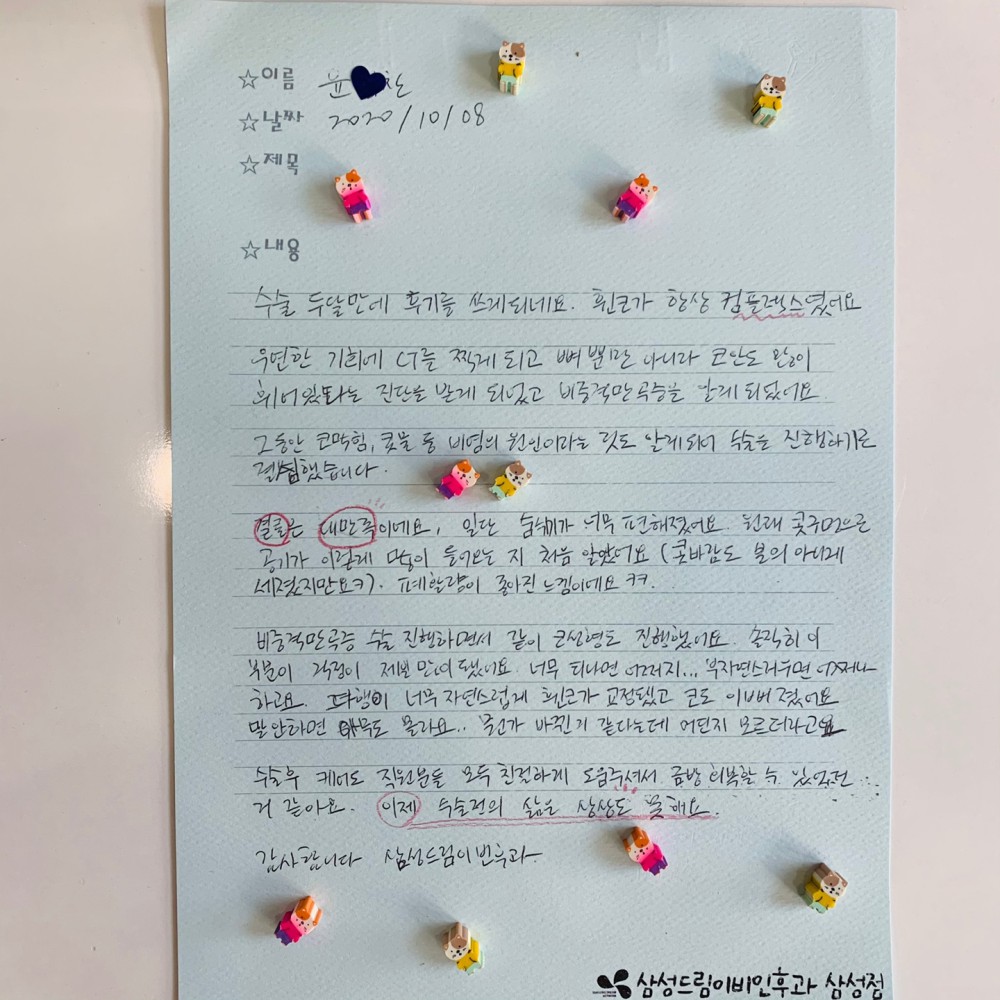 ☆이름 윤♥찬
☆날짜 2020/10/08
☆제목
☆내용
수술 두달만에 후기를 쓰게되네요. 휜코가 항상 컴플렉스였어요
우연한 기회에 CT를 찍게 되고 뼈 뿐만 아니라 코안도 많이
휘어있다라는 진단을 받게 되었고 비중격만곡증을 알게 되었어요.
그동안 코막힘, 콧물 등 비염의 원인이라는 것도 알게되어 수술을 진행하기로
결심했습니다.
결론은 대만족이에요, 일단 숨쉬기가 너무 편해졌어요. 원래 콧구멍으로
공기가 이렇게 많이 들어오는 지 처음 알았어요 (콧바람도 본의 아니게
세졌지만요ㅋ). 폐활량이 좋아진 느낌이에요 ㅋㅋ.
비중격만곡증 수술 진행하면서 같이 코성형도 진행했어요. 솔직히 이
부분이 걱정이 제일 많이 됐어요. 너무 티나면 어쩌지... 부자연스러우면 어쩌나
하고요. 다행이 너무 자연스럽게 휜코가 교정됐고 코도 이뻐 졌어요
말안하면 아무도 몰라요.. 뭔가 바뀐거 같다는데 어딘지 모르더라고요
수술후 케어도 직원분들 모두 친절하게 도움주셔서 금방 회복할 수 있었던
거 같아요. 이제 수술전의 삶은 상상도 못해요.
감사합니다 삼성드림이비인후과.
삼성드림이비인후과 삼성점